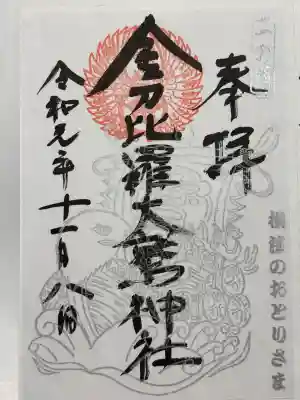 奉拝
金刀比羅大鷲神社
令和元年十一月八日
横濱のおとりさま